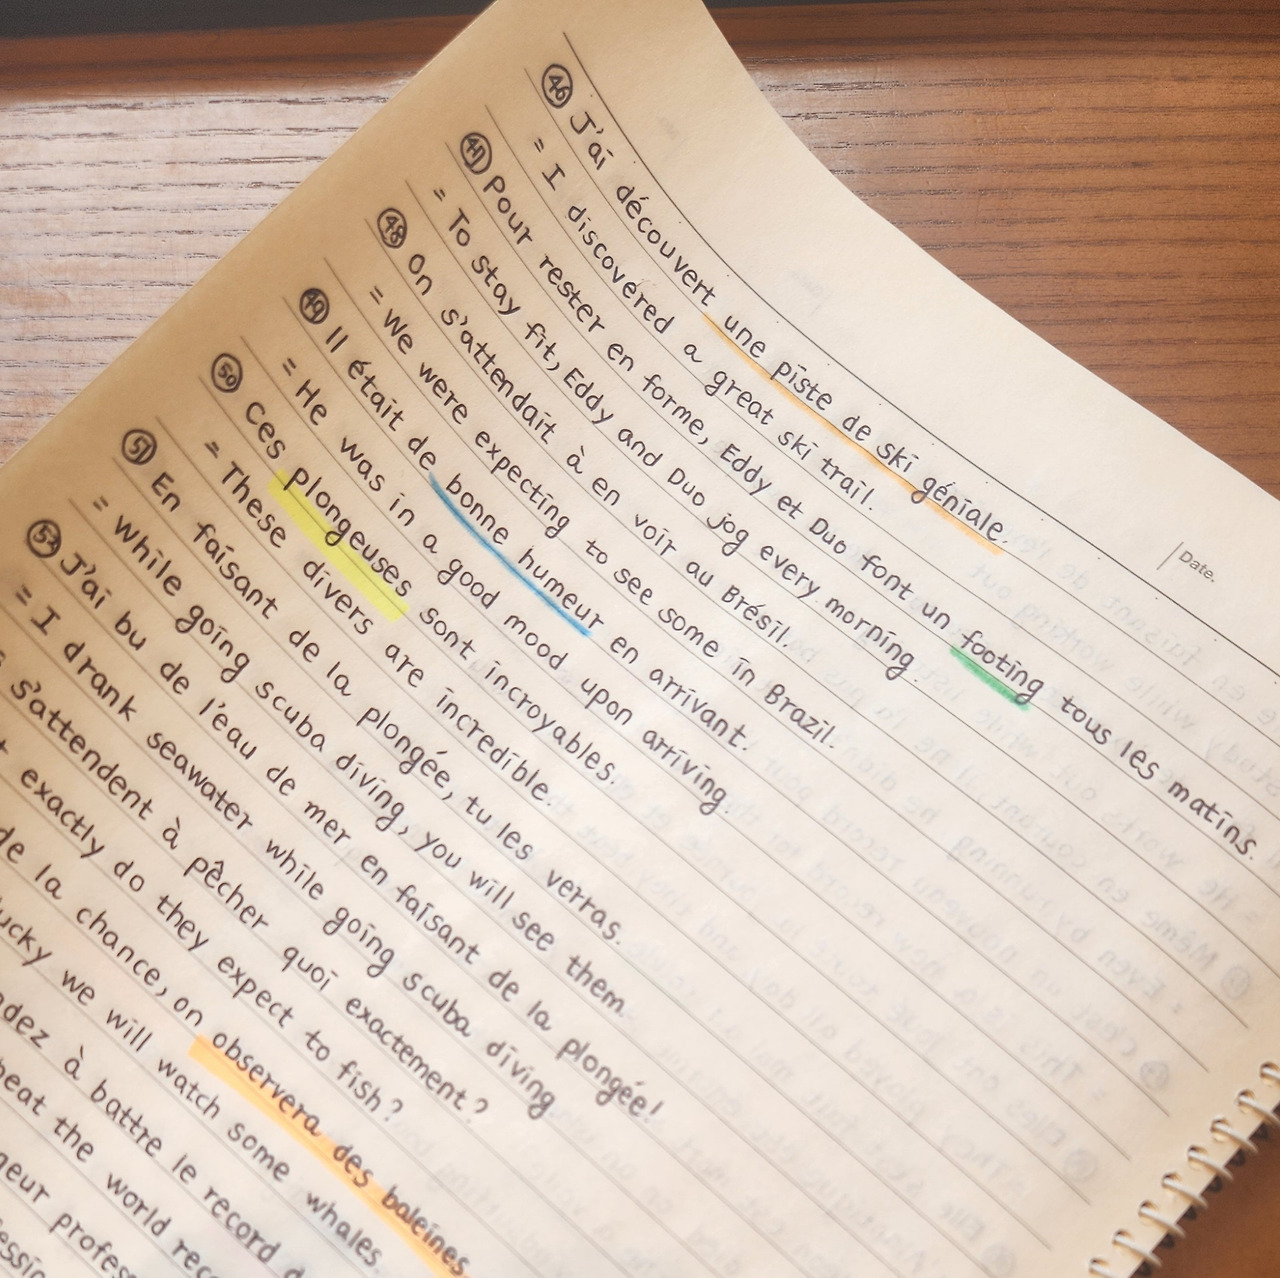 Date.
46 J'ai découvert une piste de ski géniale.
= I discovered a great ski trail.
47 Pour rester en forme, Eddy et Duo font un footing tous les matins.
= To stay fit, Eddy and Duo jog every morning.
48 On s'attendait à en voir au Brésil.
= We were expecting to see some in Brazil.
49 Il était de bonne humeur en arrivant.
= He was in a good mood upon arriving.
50 Ces plongeuses sont incroyables.
= These divers are incredible.
51 En faisant de la plongée, tu les verras.
= While going scuba diving, you will see them.
52 J'ai bu de l'eau de mer en faisant de la plongée!
= I drank seawater while going scuba diving
s'attendent à pêcher quoi exactement?
exactly do they expect to fish?
de la chance, on observera des baleines
we will watch some whales.
à battre le record
the world